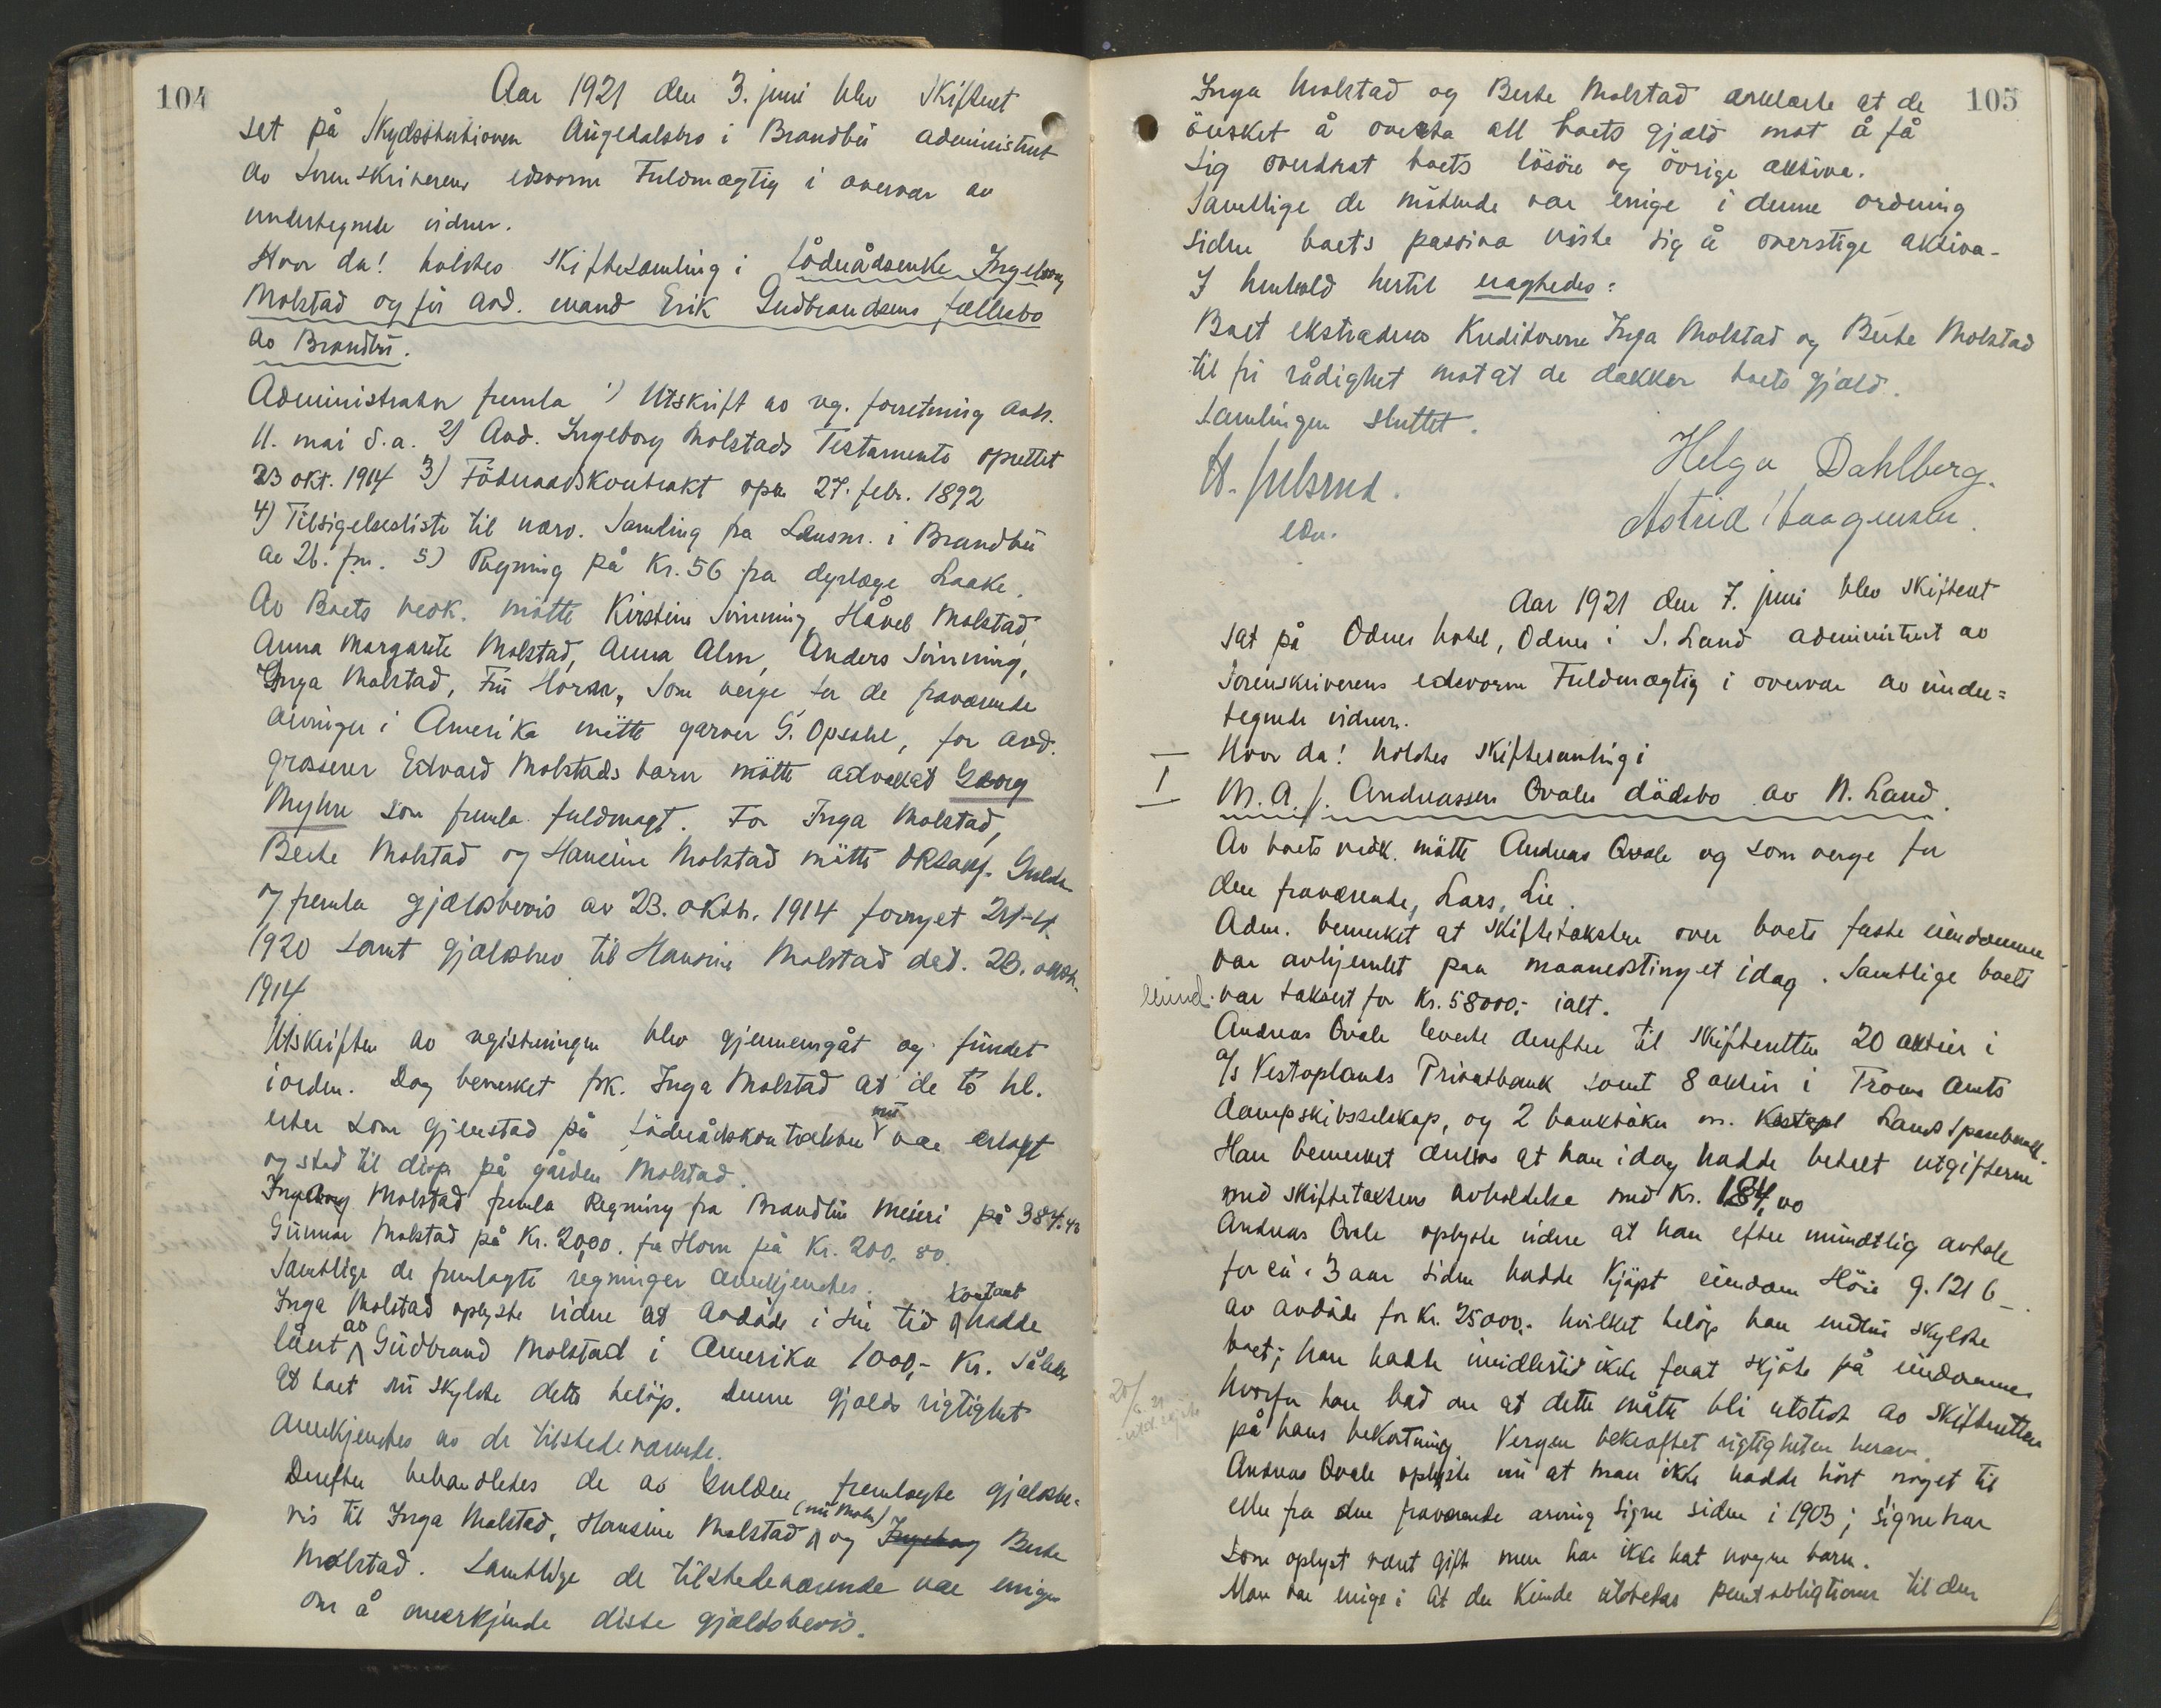 104
Aar 1921 den 3. juni blev Skifteret
sat på Skydsstationen Augedalsbro i Brandbu administrert
av Sorenskriverens edsvorne Fuldmægtig i overvær av
undertegnede vidner.
Hvor da! holdtes skiftesamling i födrådsenke Ingeborg
Molstad og för avd. mand Erik Gudbrandsens fællesbo
av Brandbu.
Administrator fremla 1) Utskrift av reg. forretning avh.
11. mai d.a. 2) Avd. Ingeborg Molstads Testamente oprettet
23 okt. 1914 3) Föderaadskontrakt opr. 27. febr. 1892
4) Tilsigelsesliste til nærv. Samling fra Lensm. i Brandbu
av 26. f.m. 5) Regning på Kr. 56 fra dyrlæge Laake.
Av Boets vedk. mötte Kirstine Svinning, Håvel Molstad
Anna Margrete Molstad, Anna Alm, Anders Svinning,
Inga Molstad, Fru Horn, Som verge for de fraværende
arvinger i Amerika mötte garver G. Opsahl, for avd.
grosserer Edvard Molstads barn mötte advokat Georg
Myhre som fremla fuldmagt. For Inga Molstad,
Berte Molstad og Hansine Molstad mötte ORSakf. Gulden
og fremla gjældsbevis av 23. oktb. 1914 fornyet 21-4
1920 samt gjældsbrev til Hansine Molstad dat. 23. oktb.
1914
Utskriften av registreringen blev gjennemgåt og fundet
i orden. Dog bemerket frk. Inga Molstad at de to hl.
erter som gjenstod på födrådskontrakten nu var erlagt
og stod til disp. på gården Molstad.
Ingeborg Molstad fremla Regning fra Brandbu Meieri på 384.43
Gunnar Molstad på Kr. 20,00. fra Horn på Kr. 200.80.
Samtlige de fremlagte regninger anerkjendtes.
Inga Molstad oplyste videre at avdöde i sin tid kontant hadde
lånt av Gudbrand Molstad i Amerika 1000,- Kr. Således
at boet nu skyldte dette belöp. Denne gjælds rigtighet
anerkjendtes av de tilstedeværende.
Derefter behandledes de av Gulden fremlagte gjældsbe-
vis til Inga Molstad, Hansine Molstad (nu Moln) og Ingeborg Berte
Molstad. Samtlige de tilstedeværende var enige
om å anerkjende disse gjældsbevis.
105
Inga Molstad og Berte Molstad erklærte at de
önsket å overta all boets gjæld mot å få
sig overdrat boets lösöre og övrige aktiva.
Samtlige de mötende var enige i denne ordning
siden boets passiva viste sig å overstige aktiva.
I henhold hertil eragtedes:
Boet ekstraderes Kreditorene Inga Molstad og Berte Molstad
til fri rådighet mot at de dækker boets gjæld.
Samlingen sluttet.
Helga Dahlberg.
Astrid Haagensen.
edsv.
Aar 1921 den 7. juni blev skifteret
sat på Odnes hotel, Odnes i S. Land administrert av
Sorenskriverens edsvorne Fuldmægtig i overvær av under=
tegnede vidner.
Hvor da! holdtes skiftesamling i
I M. A. f. Andreassen Qvales dödsbo av N. Land.
Av boets vedk. mötte Andreas Qvale og som verge for
den fraværende, Lars Lie.
Adm. bemerket at skiftetaksten over boets faste eiendomme
var avhjemlet paa maanedstinget idag. Samtlige boets
eiend. var taksert for Kr. 58000,- ialt.
Andreas Qvale leverte derefter til skifteretten 20 aktier i
A/s Vestoplands Privatbank samt 8 aktier i Troms Amts
dampskibsselskap, og 2 bankböker m. Vestopl Lands Sparebank.
Han bemerket derhos at han idag hadde betalt utgifterne
med skiftetakstens avholdelse med Kr. 184,00
Andreas Qvale oplyste videre at han efter mundtlig avtale
for ca. 3 aar siden hadde kjöpt eiendom Höie g. 121 b
av avdöde for Kr. 25000,- hvilket belöp han endnu skyldte
boet; han hadde imidlertid ikke faat skjöte på eiendommen
hvorfor han bad om at dette måtte bli utstedt av skifteretten
på hans bekostning. Vergen bekræftet rigtigheten herav.
20/6 21 utst. skjöte
Andreas Qvale oplyste nu at man ikke hadde hört noget til
eller fra den fraværende arving Signe siden i 1903; Signe har
som oplyst været gift men har ikke hat nogen barn.
Man var enige i at der kunde utstedes panteobligtioner til den